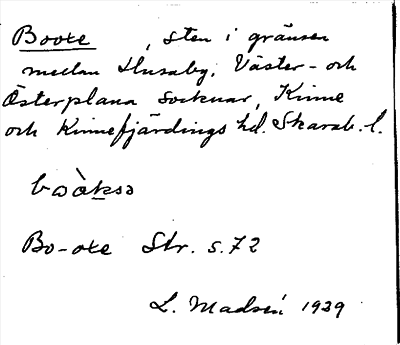 Booxe , sten i gränsen
mellan Husaby, Väster- och
Österplana socknar, Kinne
och Kinnefjärdings hd. Skarab. l.
Bo-oxe Str. s. 72
L. Madsén 1929